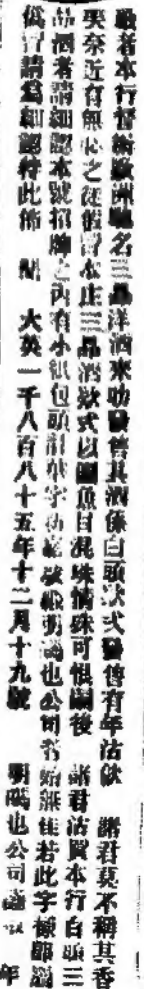 啟者本行督衛歐洲馳名三品洋酒來叻發售其酒係白頭欵式發售有年沽飲 諸君莫不稱其香
更奈近有無恥之徒假冒本庄三品酒欵式以圖魚目混珠情殊可恨嗣後 諸君沽買本行白頭三
品酒者請細認本號招牌之內有小紙包頭 字 明瑪也公司 無 若此字樣即
低 請為細認特此佈 聞 大英一千八百八十五年十二月十九號 明瑪也公司 年